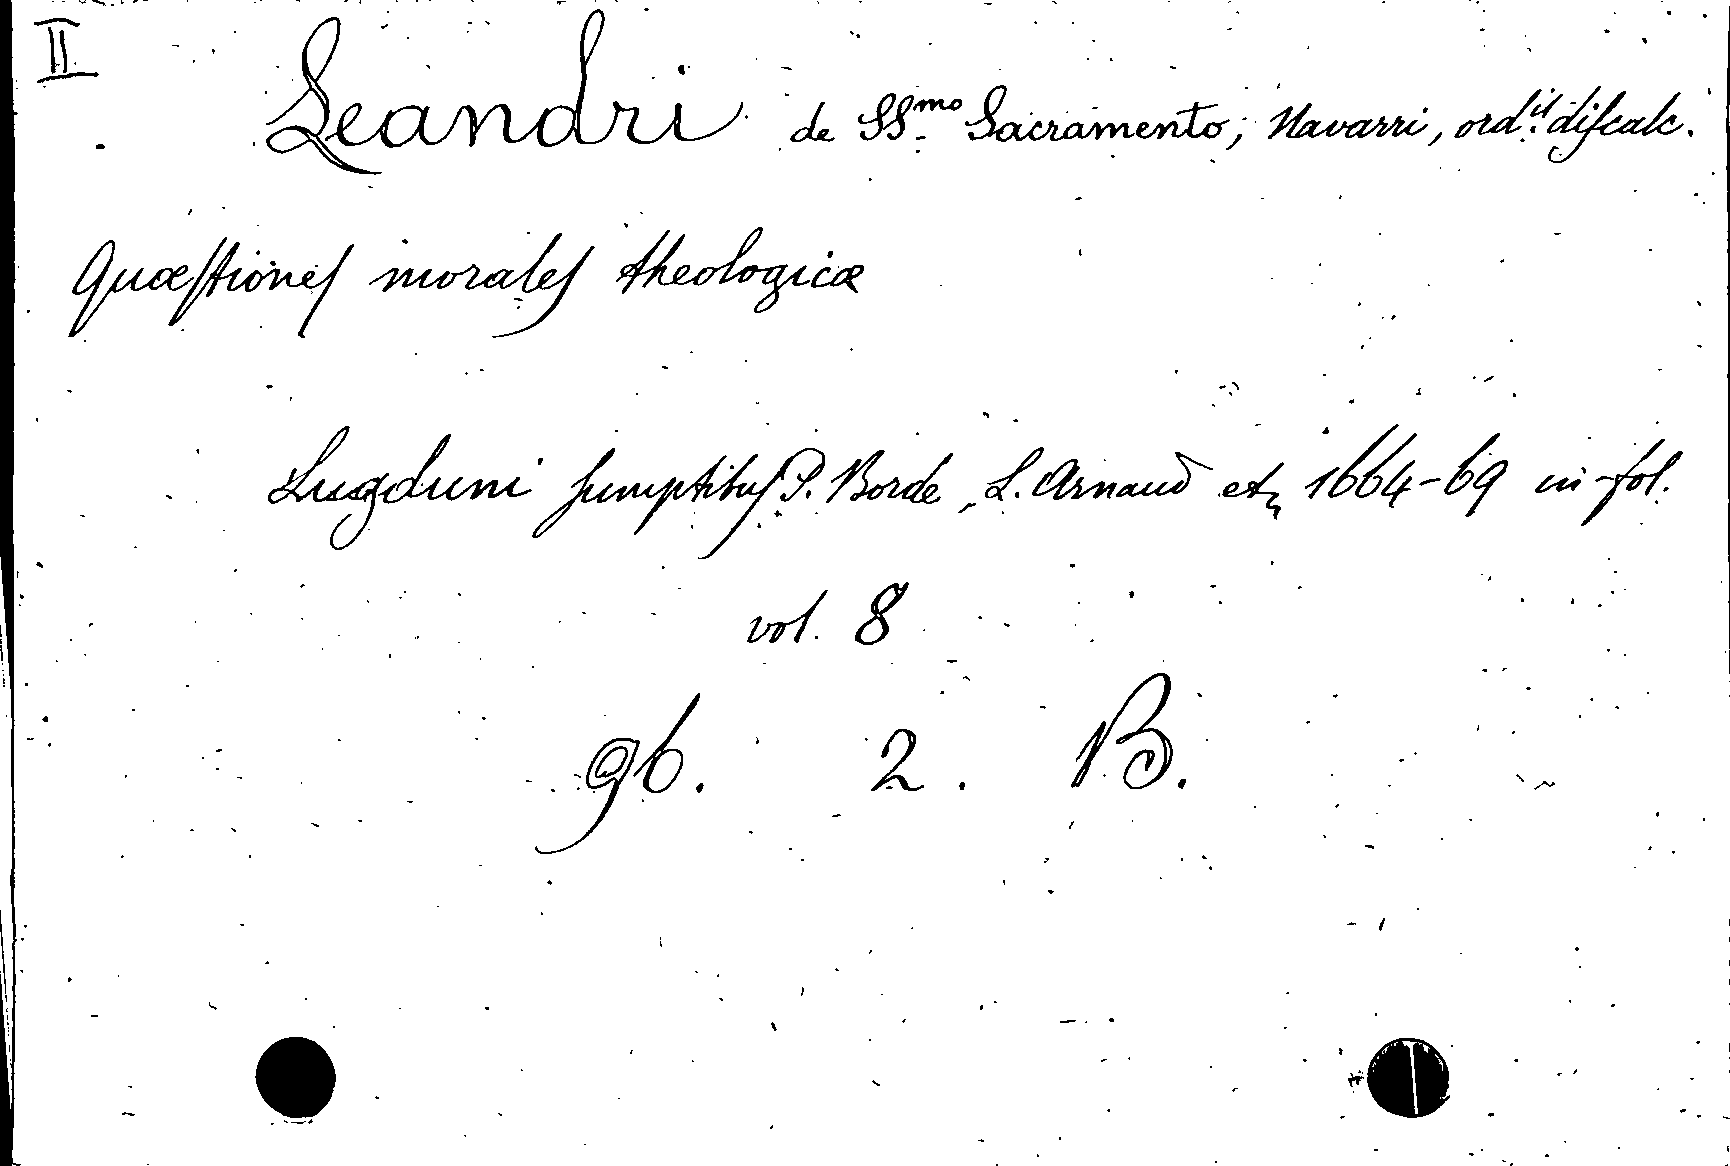 II
Leandri de SS.mo Sacramento, Navarri, ord.is diſcalc.
Quæſtioneſ moraleſ theologicæ
Lugduni ſumptibuſ P. Borde, L. Arnaud et, 1664-69 in-fol.
vol. 8
9b. 2. B.